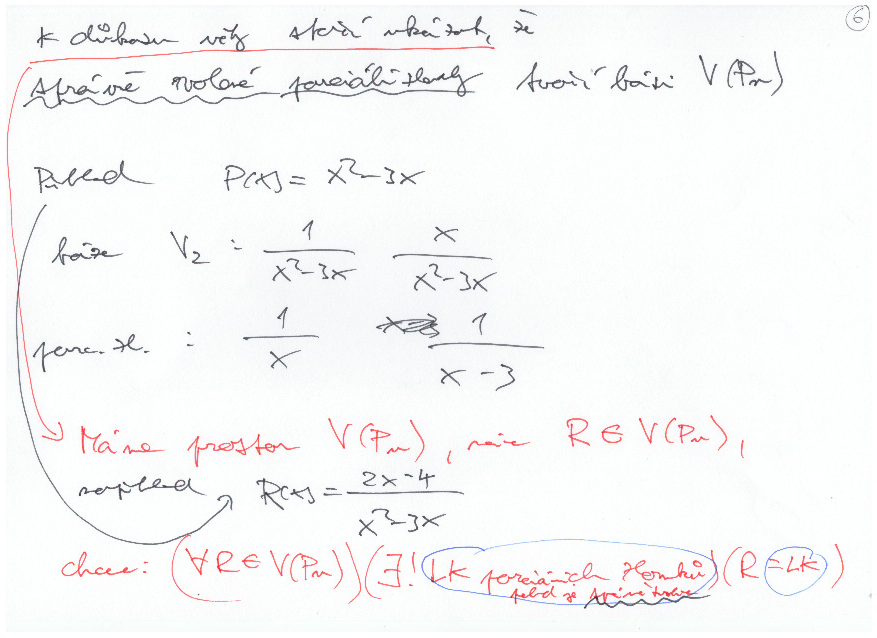 6
K důkazu věty stačí ukázat, že
správně zvolené parciální zlomky tvoří bázi V(Pn)
Příklad P(x) = x² - 3x
báze V₂ : 1/(x²-3x) x/(x²-3x)
parc. zl. : 1/x 1/(x-3)
Máme prostor V(Pn), navíc R ∈ V(Pn),
například R(x) = (2x-4)/(x²-3x)
chceme: (∀R ∈ V(Pn))(∃! LK parciálních zlomků)(R = LK)